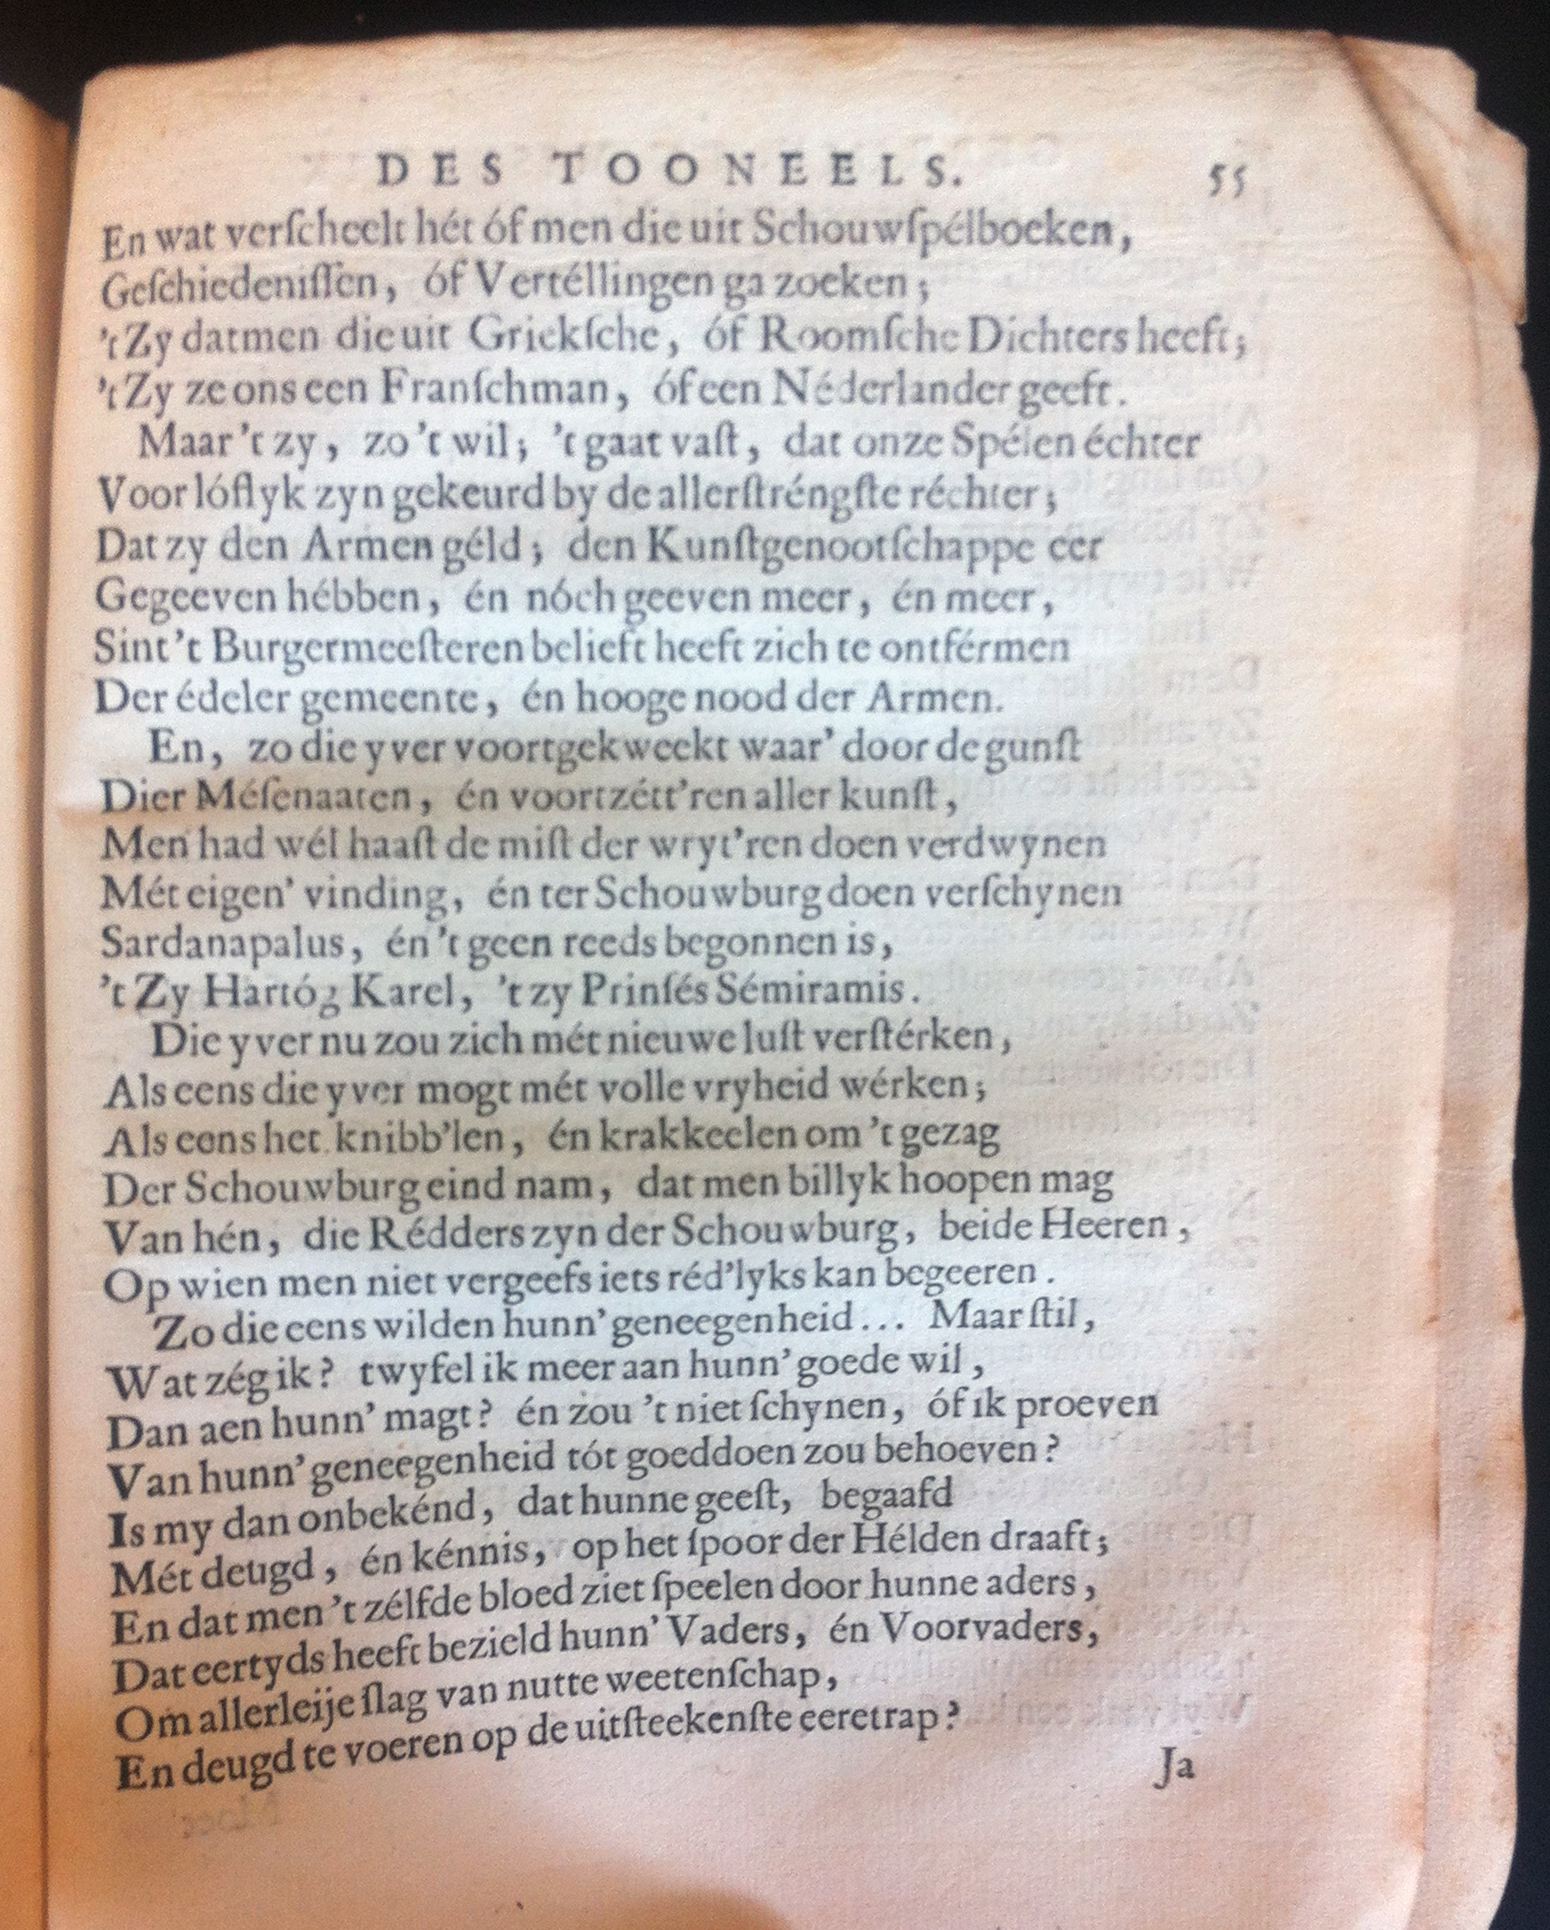 DES TOONEELS. 55
En wat verſcheelt hét óf men die uit Schouwſpélboeken,
Geſchiedeniſſen, óf Vertéllingen ga zoeken;
'tZy datmen die uit Griekſche, óf Roomſche Dichters heeft;
'tZy ze ons een Franſchman, óf een Néderlander geeft.
Maar 't zy, zo 't wil; 't gaat vaſt, dat onze Spélen échter
Voor lóflyk zyn gekeurd by de allerſtréngſte réchter;
Dat zy den Armen géld; den Kunſtgenootſchappe eer
Gegeeven hébben, én nóch geeven meer, én meer,
Sint 't Burgermeeſteren belieft heeft zich te ontférmen
Der édeler gemeente, én hooge nood der Armen.
En, zo die yver voortgekweekt waar' door de gunſt
Dier Méſenaaten, én voortzétt'ren aller kunſt,
Men had wél haaſt de miſt der wryt'ren doen verdwynen
Mét eigen' vinding, én ter Schouwburg doen verſchynen
Sardanapalus, én 't geen reeds begonnen is,
't Zy Hartóg Karel, 't zy Prinſés Sémiramis.
Die yver nu zou zich mét nieuwe luſt verſtérken,
Als eens die yver mogt mét volle vryheid wérken;
Als eens het knibb'len, én krakkeelen om 't gezag
Der Schouwburg eind nam, dat men billyk hoopen mag
Van hén, die Rédders zyn der Schouwburg, beide Heeren,
Op wien men niet vergeefs iets réd'lyks kan begeeren.
Zo die eens wilden hunn' geneegenheid... Maar ſtil,
Wat zég ik? twyfel ik meer aan hunn' goede wil,
Dan aen hunn' magt? én zou 't niet ſchynen, óf ik proeven
Van hunn' geneegenheid tót goeddoen zou behoeven?
Is my dan onbekénd, dat hunne geeſt, begaafd
Mét deugd, én kénnis, op het ſpoor der Hélden draaft;
En dat men 't zélfde bloed ziet ſpeelen door hunne aders,
Dat eertyds heeft bezield hunn' Vaders, én Voorvaders,
Om allerleije ſlag van nutte weetenſchap,
En deugd te voeren op de uitſteekenſte eeretrap?
Ja